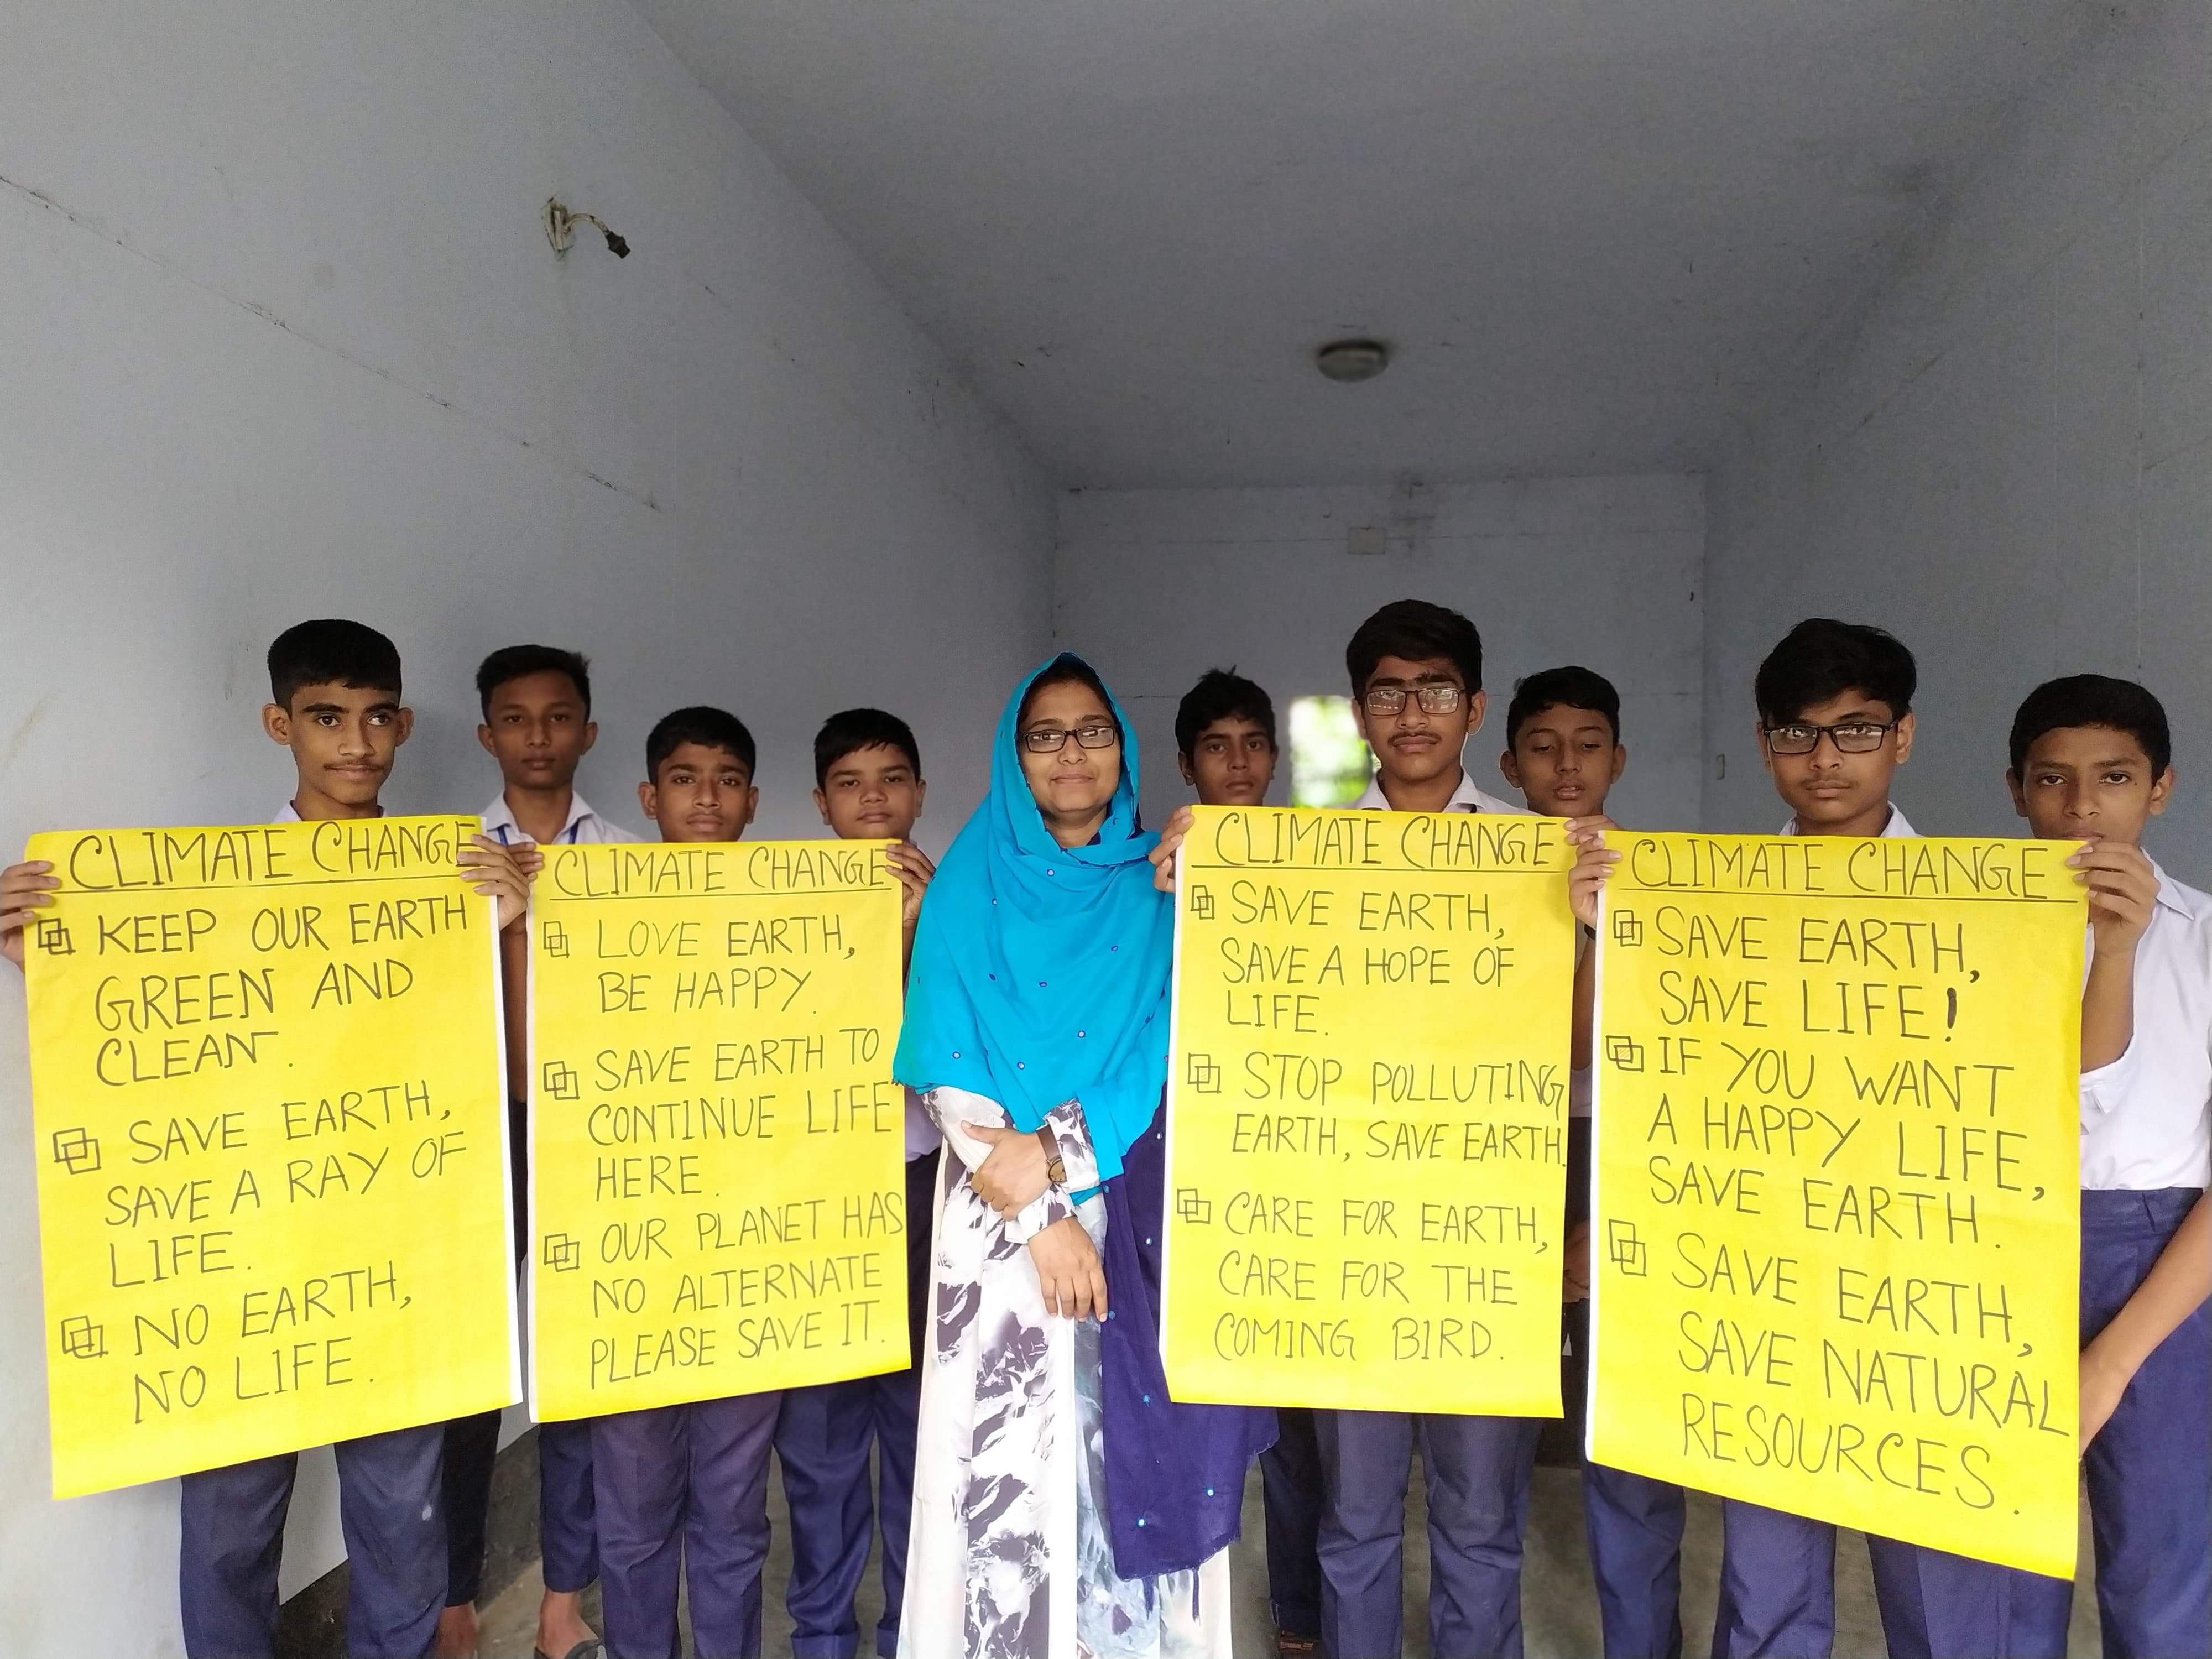 CLIMATE CHANGE
KEEP OUR EARTH
GREEN AND
CLEAN.
SAVE EARTH,
SAVE A RAY OF
LIFE.
NO EARTH,
NO LIFE.
CLIMATE CHANGE
LOVE EARTH,
BE HAPPY.
SAVE EARTH TO
CONTINUE LIFE
HERE.
OUR PLANET HAS
NO ALTERNATE
PLEASE SAVE IT.
CLIMATE CHANGE
SAVE EARTH,
SAVE A HOPE OF
LIFE.
STOP POLLUTING
EARTH, SAVE EARTH.
CARE FOR EARTH,
CARE FOR THE
COMING BIRD.
CLIMATE CHANGE
SAVE EARTH,
SAVE LIFE!
IF YOU WANT
A HAPPY LIFE,
SAVE EARTH.
SAVE EARTH,
SAVE NATURAL
RESOURCES.